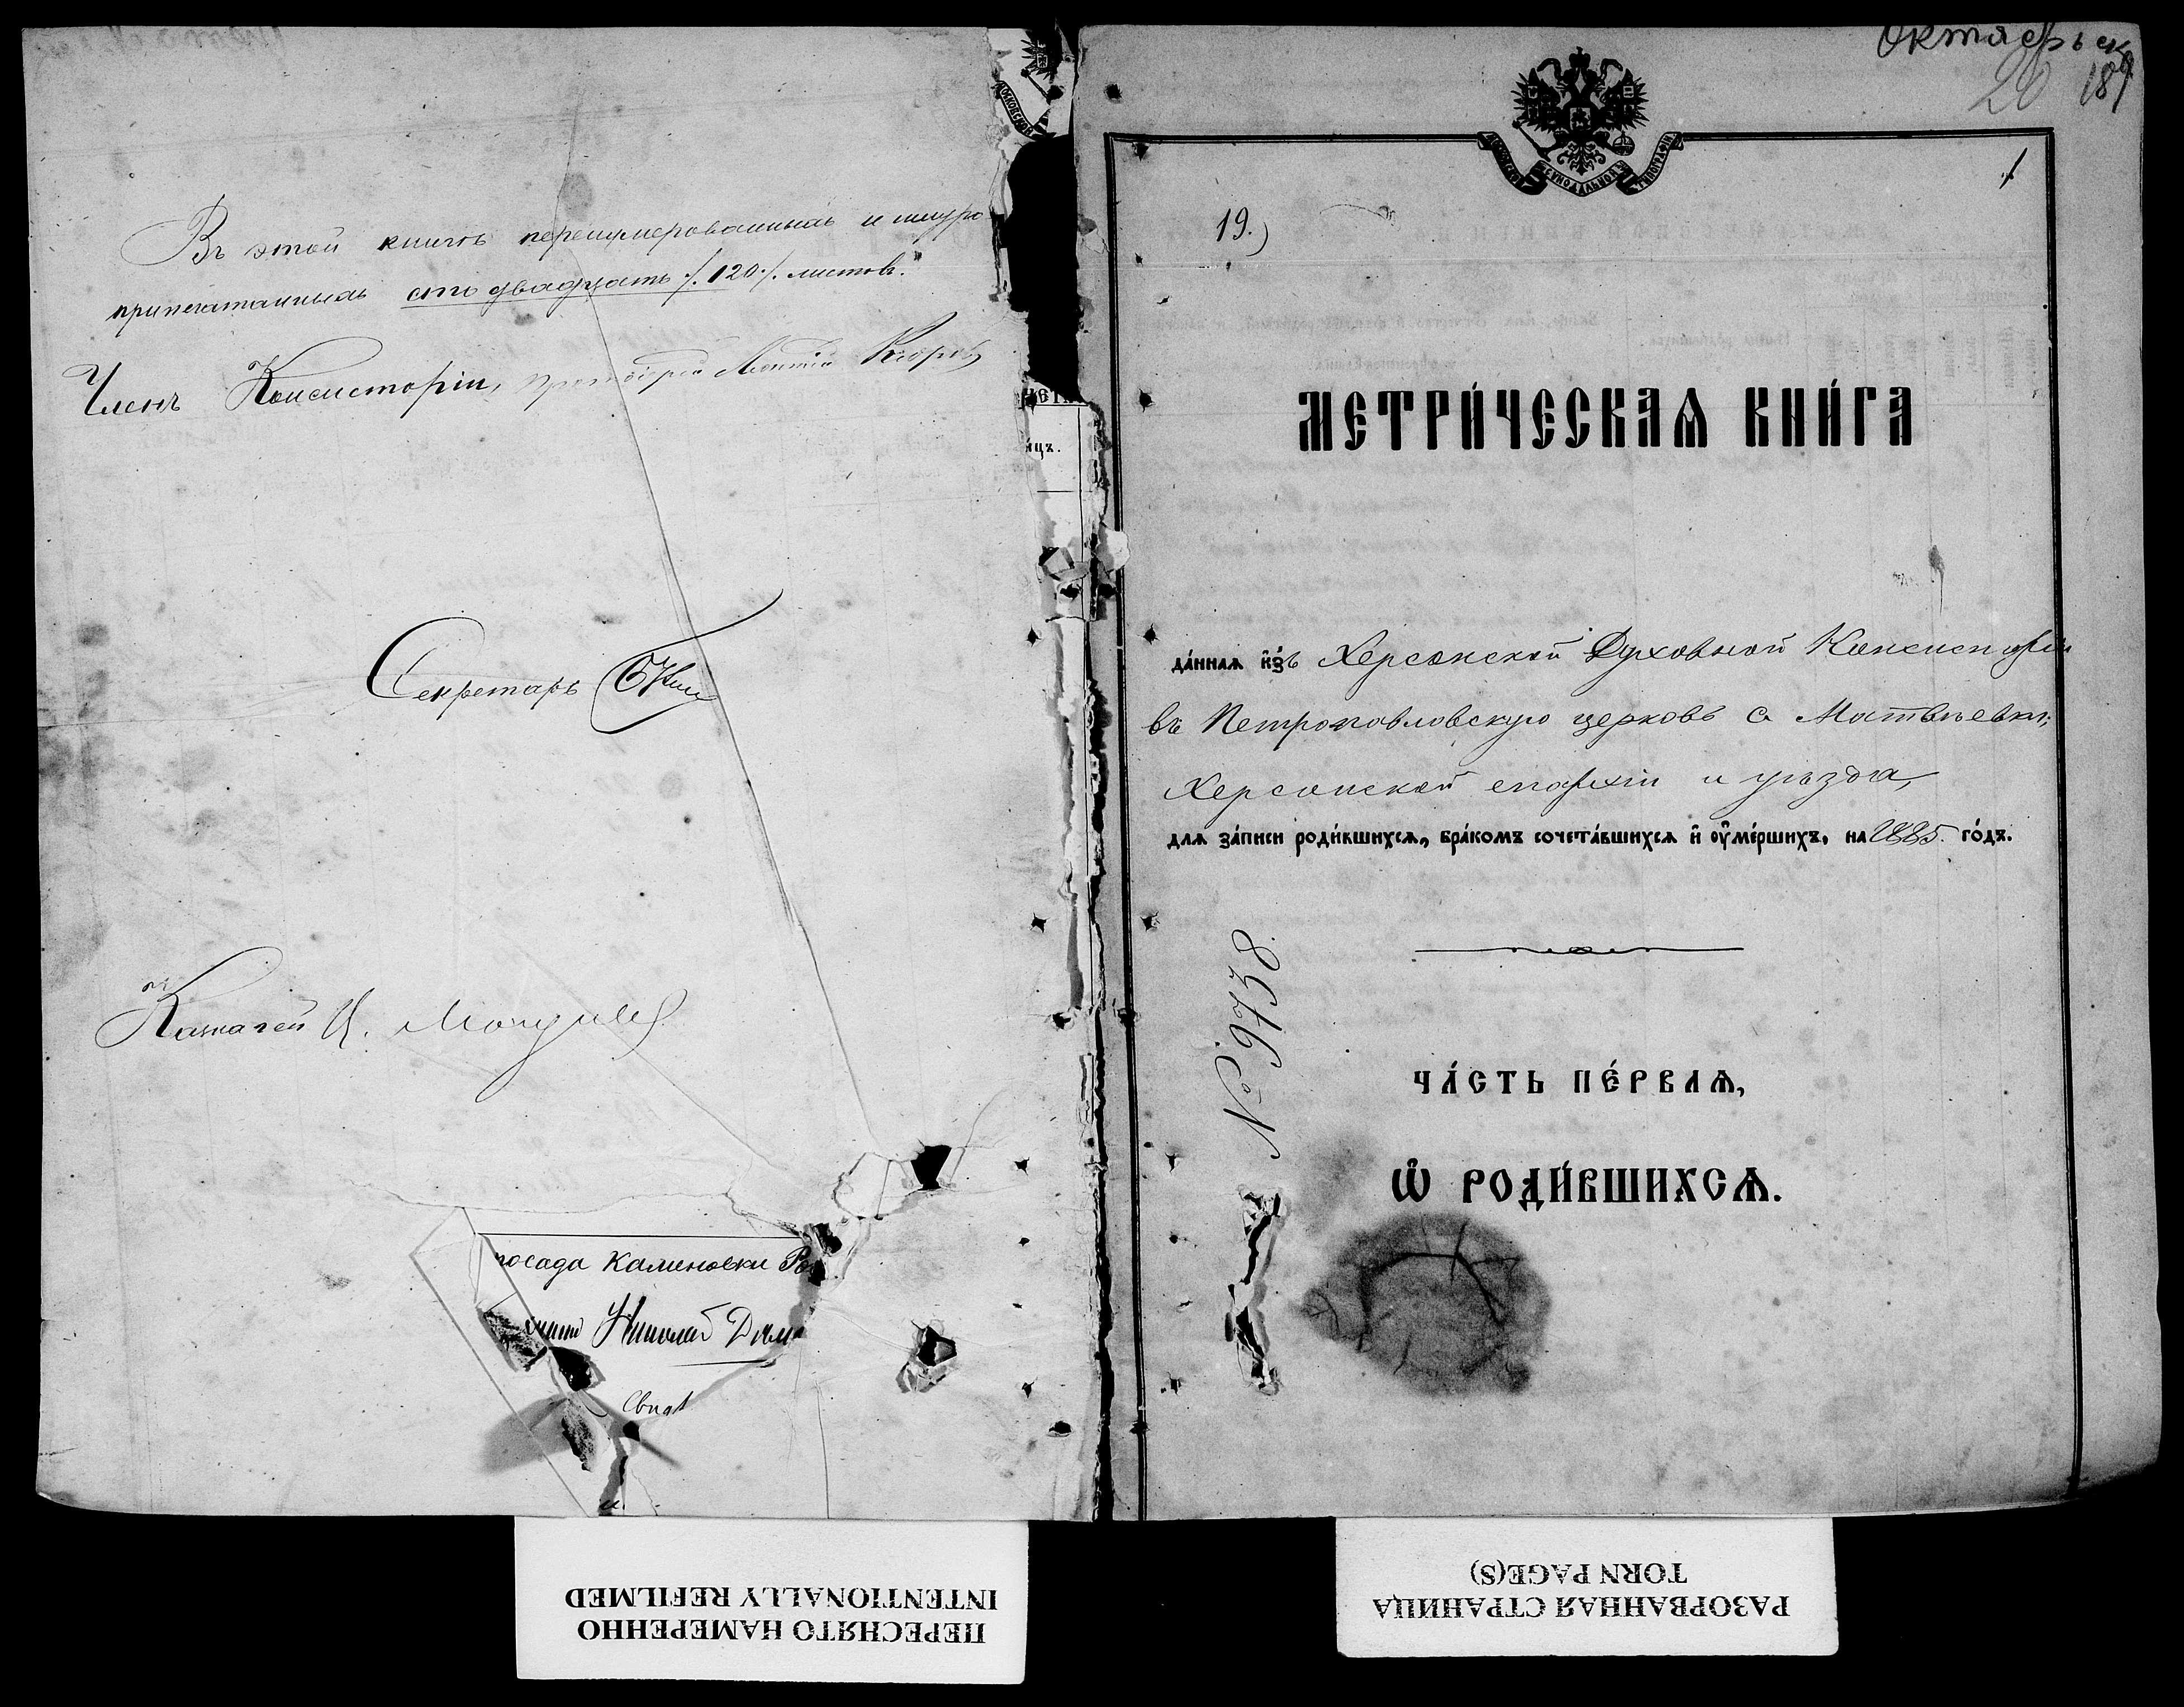 Въ этой книгѣ перенумерованныхъ и шнуро
припечатанныхъ сто двадцать /.120./ листовъ.
Членъ Консисторіи, протоіерей
Секретарь
Казначей
посада Калиновки
Николай
Свид
ицъ.
Октябрьск
20 189
МОСКОВСКОЙ СѴНОДАЛЬНОЙ ТИПОГРАФІИ
1
19.)
МЕТРИ́ЧЕСКАѦ КНИ́ГА
да́ннаѧ и҆зъ Херсонской Духовной Консисторіи
въ Петропавловскую церковь с. Матвѣевки,
Херсонской епархіи и уѣзда,
длѧ за́писи роди́вшихсѧ, бра́комъ сочета́вшихсѧ и҆ ᲂу҆ме́ршихъ, на 1885. го́дъ.
№ 9738.
ЧА́СТЬ ПЕ́РВАѦ,
Ѡ҆ РОДИ́ВШИХСѦ.
ПЕРЕСНЯТО НАМЕРЕННО
INTENTIONALLY REFILMED
РАЗОРВАННАЯ СТРАНИЦА
TORN PAGE(S)